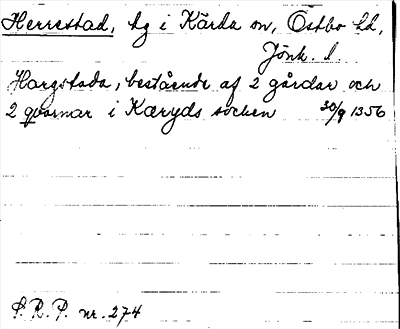 Herrestad, hg i Kärda sn, Östbo hd,
Jönk. l.
Hargstada, bestående af 2 gårdar och
2 qvarnar i Kæryds socken 30/9 1356
S. R. P. nr. 274